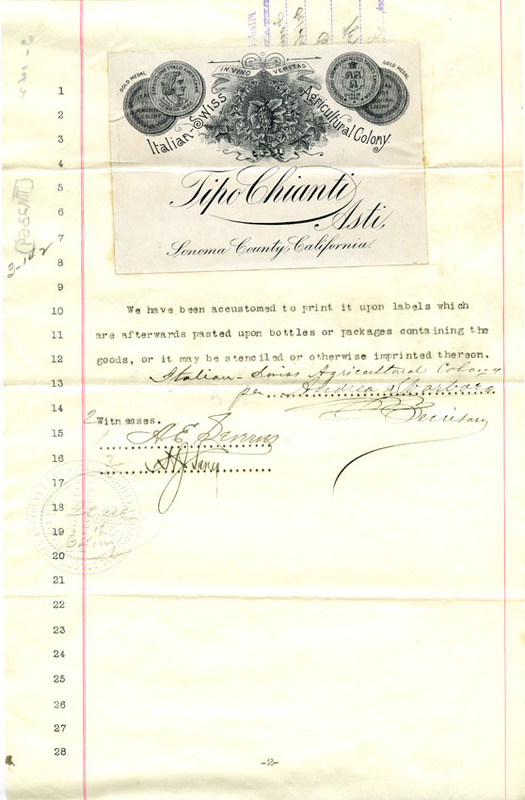 GOLD MEDAL
IN VINO VERITAS
GOLD MEDAL
Italian-Swiss Agricultural Colony.
Tipo Chianti
Asti,
Sonoma County, California.
1
2
3
4
5
6
7
8
9
10 We have been accustomed to print it upon labels which
11 are afterwards pasted upon bottles or packages containing the
12 goods, or it may be stenciled or otherwise imprinted thereon.
Italian-Swiss Agricultural Colony
13 per Andrea Sbarboro
14 Secretary
2 Witnesses.
15 1 A. E.
16 2
17
18
19
20
21
22
23
24
25
26
27
28
-2-